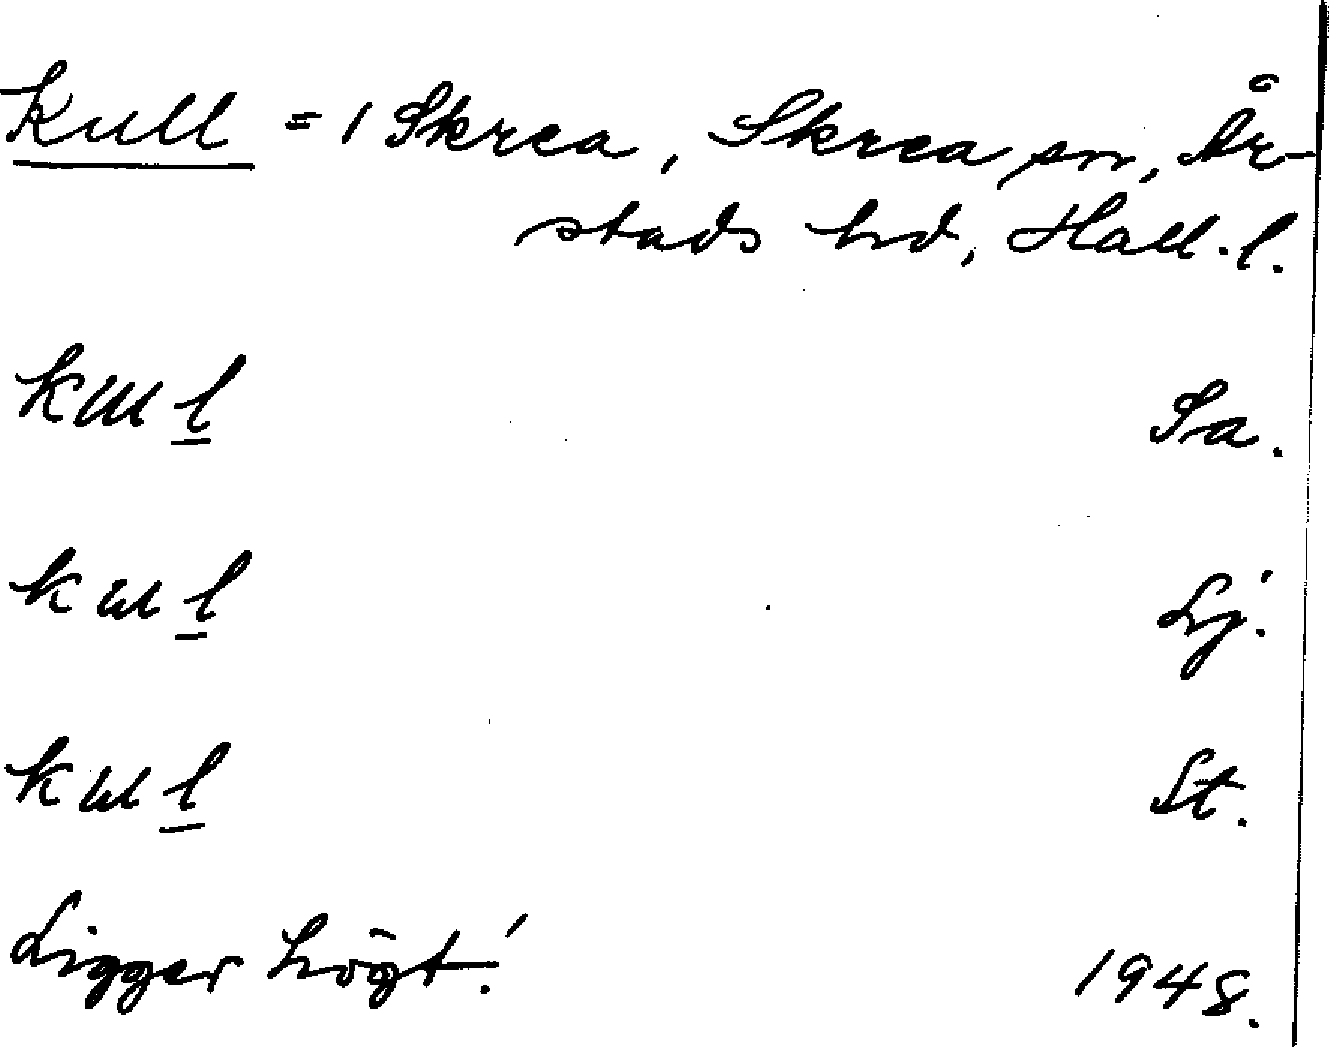 Kull = 1 Skrea, Skrea sn, År-
stads hd, Hall. l.
kɯl Sa.
kɯl Lj.
kɯl St.
Ligger högt! 1948.